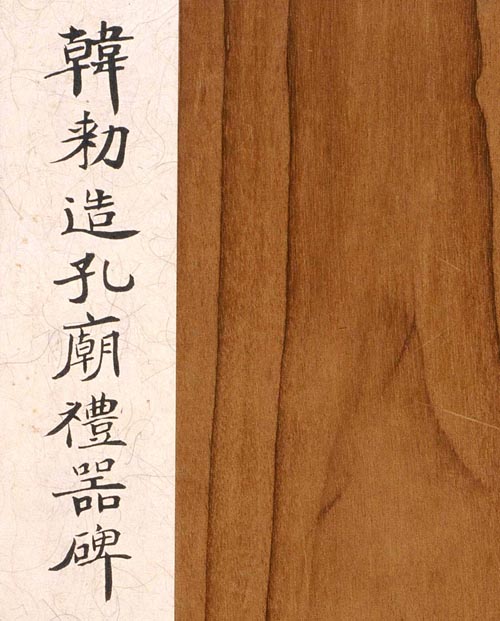 韓勑造孔廟禮器碑